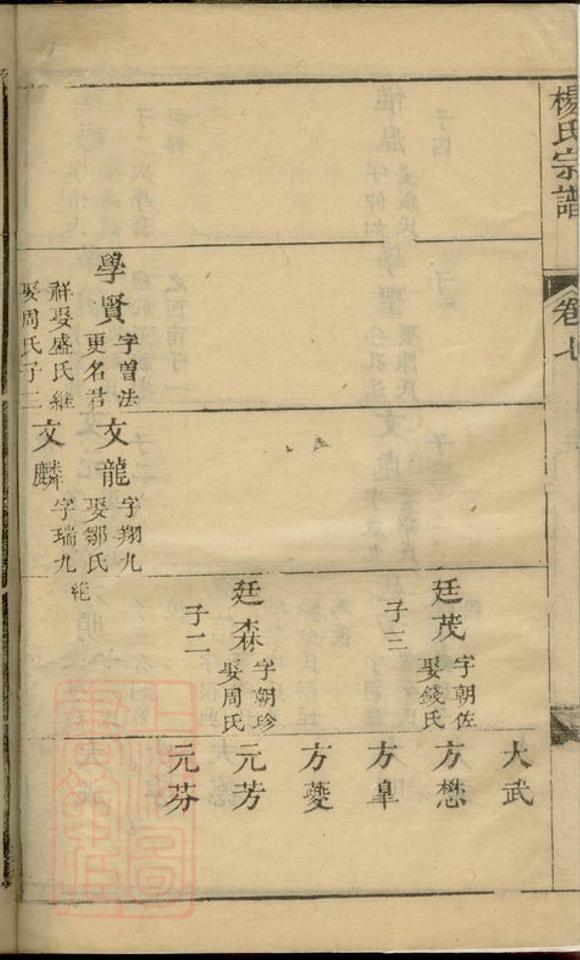 楊氏宗譜
卷七
學賢
字曽法
更名君
祥娶盛氏継
娶周氏子二
文龍
字翔九
娶鄒氏
文麟
字瑞九
絶
廷茂
字朝佐
娶錢氏
子三
廷森
字朝珍
娶周氏
子二
大武
方懋
方臯
方夔
元芳
元芬